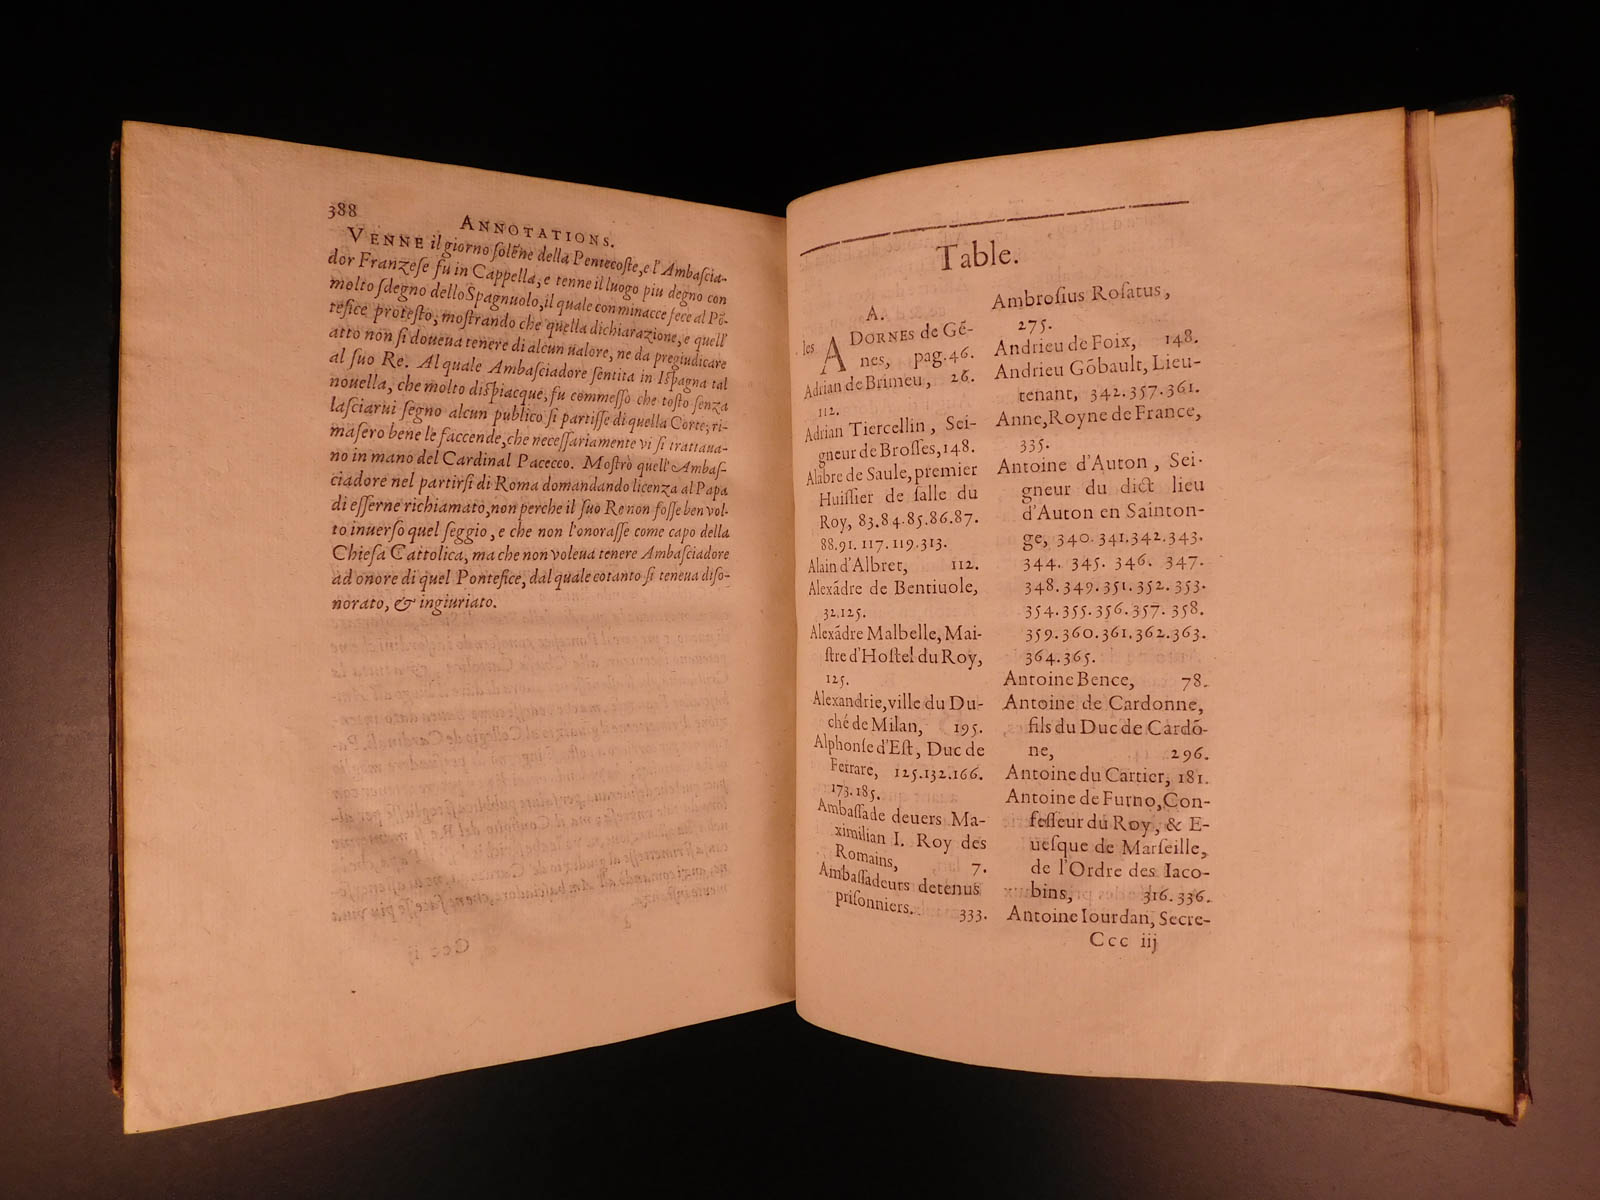 388
ANNOTATIONS.
VENNE il giorno solẽne della Pentecoste, e l'Ambascia-
dor Franzese fu in Cappella, e tenne il luogo piu degno con
molto sdegno dello Spagnuolo, il quale con minacce fece al Põ-
tefice protesto, mostrando che quella dichiarazione, e quell'
atto non si doueua tenere di alcun ualore, ne da pregiudicare
al suo Re. Al quale Ambasciadore sentita in Ispagna tal
nouella, che molto dispiacque, fu commesso che tosto senza
lasciarui segno alcun publico si partisse di quella Corte; ri-
masero bene le faccende, che necessariamente vi si trattaua-
no in mano del Cardinal Pacecco. Mostrò quell'Ambas-
ciadore nel partirsi di Roma domandando licenza al Papa
di esserne richiamato, non perche il suo Re non fosse ben vol-
to inuerso quel seggio, e che non l'onorasse come capo della
Chiesa Cattolica, ma che non voleua tenere Ambasciadore
ad onore di quel Pontefice, dal quale cotanto si teneua diso-
norato, & ingiuriato.
Table.
A.
les ADORNES de Gé-
nes, pag. 46.
Adrian de Brimeu, 26.
112.
Adrian Tiercellin, Sei-
gneur de Brosses, 148.
Alabre de Saule, premier
Huissier de salle du
Roy, 83. 84. 85. 86. 87.
88. 91. 117. 119. 313.
Alain d'Albret, 112.
Alexãdre de Bentiuole,
32. 125.
Alexãdre Malbelle, Mai-
stre d'Hostel du Roy,
125.
Alexandrie, ville du Du-
ché de Milan, 195.
Alphonse d'Est, Duc de
Ferrare, 125. 132. 166.
173. 185.
Ambassade deuers Ma-
ximilian I. Roy des
Romains, 7.
Ambassadeurs detenus
prisonniers. 333.
Ambrosius Rosatus,
275.
Andrieu de Foix, 148.
Andrieu Gõbault, Lieu-
tenant, 342. 357. 361.
Anne, Royne de France,
335.
Antoine d'Auton, Sei-
gneur du dict lieu
d'Auton en Sainton-
ge, 340. 341. 342. 343.
344. 345. 346. 347.
348. 349. 351. 352. 353.
354. 355. 356. 357. 358.
359. 360. 361. 362. 363.
364. 365.
Antoine Bence, 78.
Antoine de Cardonne,
fils du Duc de Cardõ-
ne, 296.
Antoine du Cartier, 181.
Antoine de Furno, Con-
fesseur du Roy, & E-
uesque de Marseille,
de l'Ordre des Iaco-
bins, 316. 336.
Antoine Iourdan, Secre-
Ccc iij